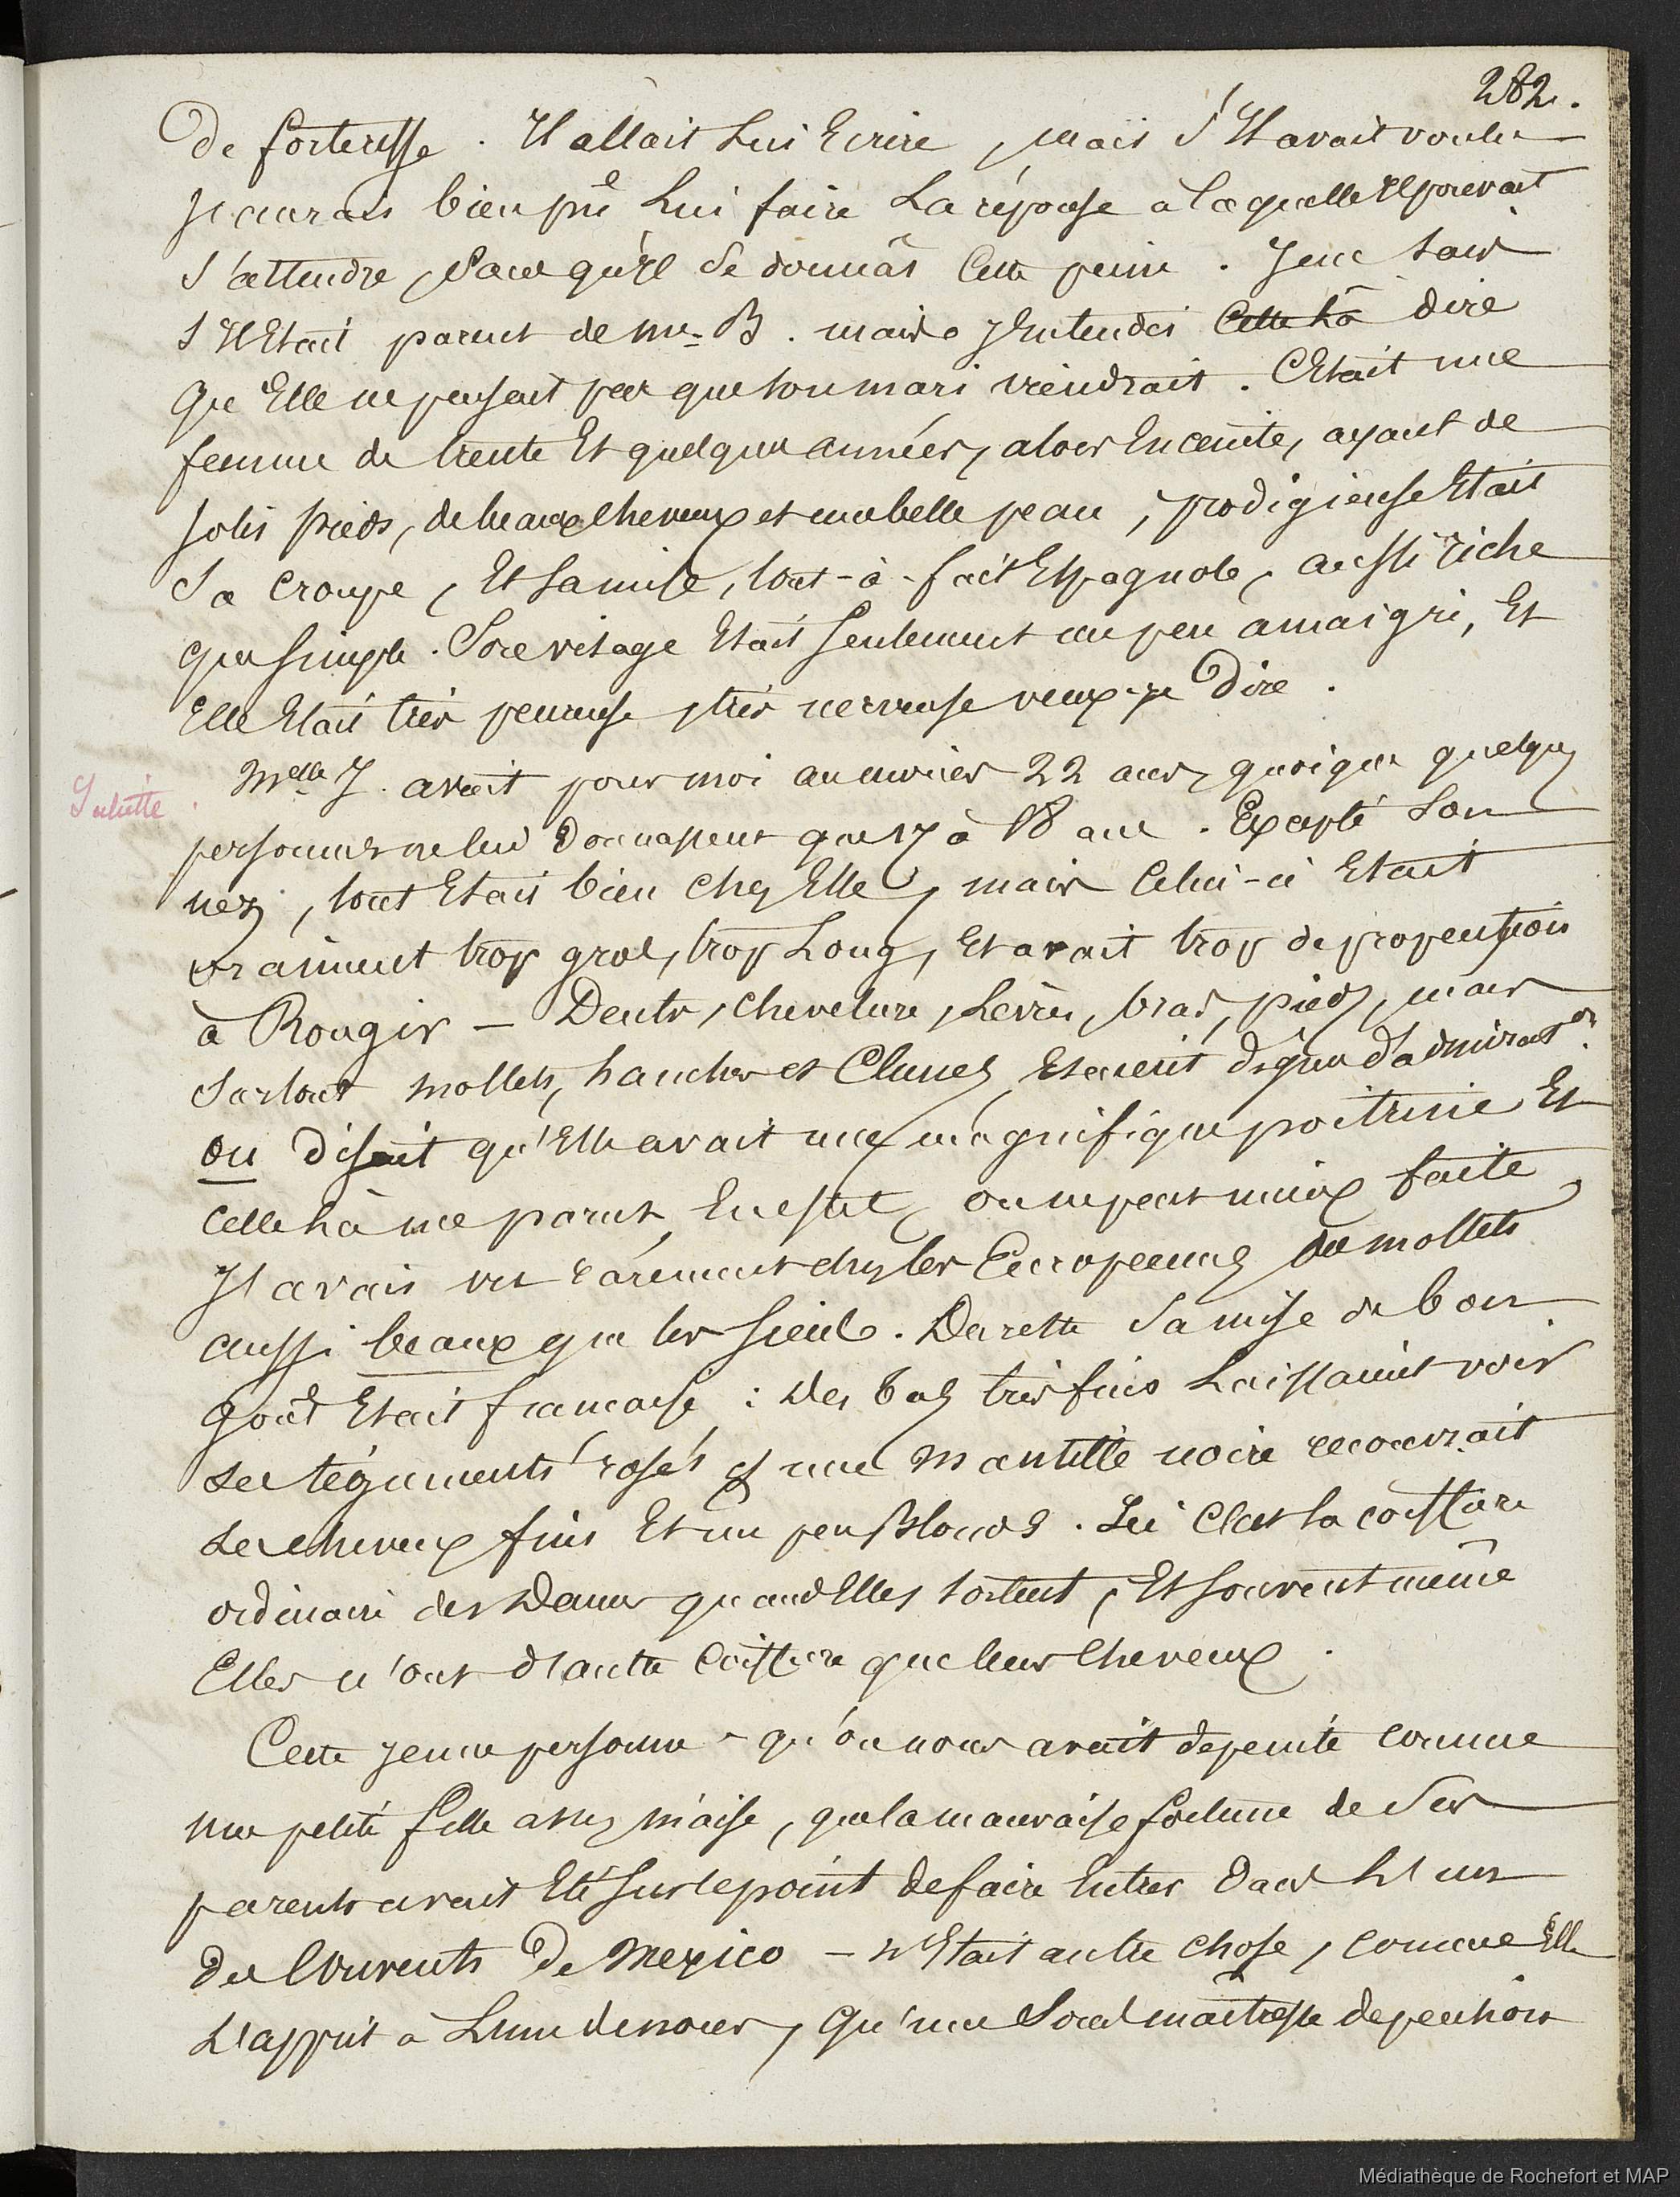 282.
de forteresse. Il allait Lui Ecrire, mais s'Il avait voulu
J'aurais bien pû Lui faire La réponse à laquelle Il pouvait
s'attendre, sans qu'Il se donnât cette peine. Je ne sais
s'Il Etait parent de Me. B. mais J'Entendis ~~Celle là~~ dire
qu'Elle ne pensait pas que son mari viendrait. C'Etait une
femme de trente Et quelques années, alors Enceinte, ayant de
jolis pieds, de beaux cheveux et une belle peau; prodigieuse Etait
sa croupe, Et sa mise, tout-à-fait Espagnole, aussi riche
que simple. Son visage Etait seulement un peu amaigri, Et
Elle Etait très peureuse, très nerveuse veux-je Dire.
Juliette
Melle J. avait pour moi au moins 22 ans, quoique quelques
personnes ne lui donnassent que 17 à 18 ans. Excepté son
nez, tout Etait bien chez Elle, mais celui-ci Etait
vraiment trop gros, trop Long, Et avait trop de propention
à Rougir — Dents, chevelure, Lèvres, bras, pieds, mais
surtout mollets, hanches et Clunes Etaient dignes d'admirat.on
on disait qu'Elle avait une magnifique poitrine Et
celle là me parut, En effet, on ne peut mieux faite,
J'avais vu rarement chez les Européennes des mollets
aussi beaux que les siens. Du reste sa mise de bon
goût Etait française: des bas très fins Laissaient voir
des téguments rosés et une mantille noire recouvrait
des cheveux fins Et un peu Blonds. Ici C'est la coiffure
ordinaire des Dames quand Elles sortent, Et souvent même
Elles n'ont d'autre coiffure que leurs cheveux.
Cette jeune personne - qu'on nous avait depeinte comme
une petite fille assez niaise, que la mauvaise fortune de ses
parents avait Eté sur le point de faire Entrer dans L'un
des Couvents De Mexico — n'Etait autre chose, comme Elle
L'apprit à L'un de nous, qu'une Sous maîtresse de pension
Médiathèque de Rochefort et MAP